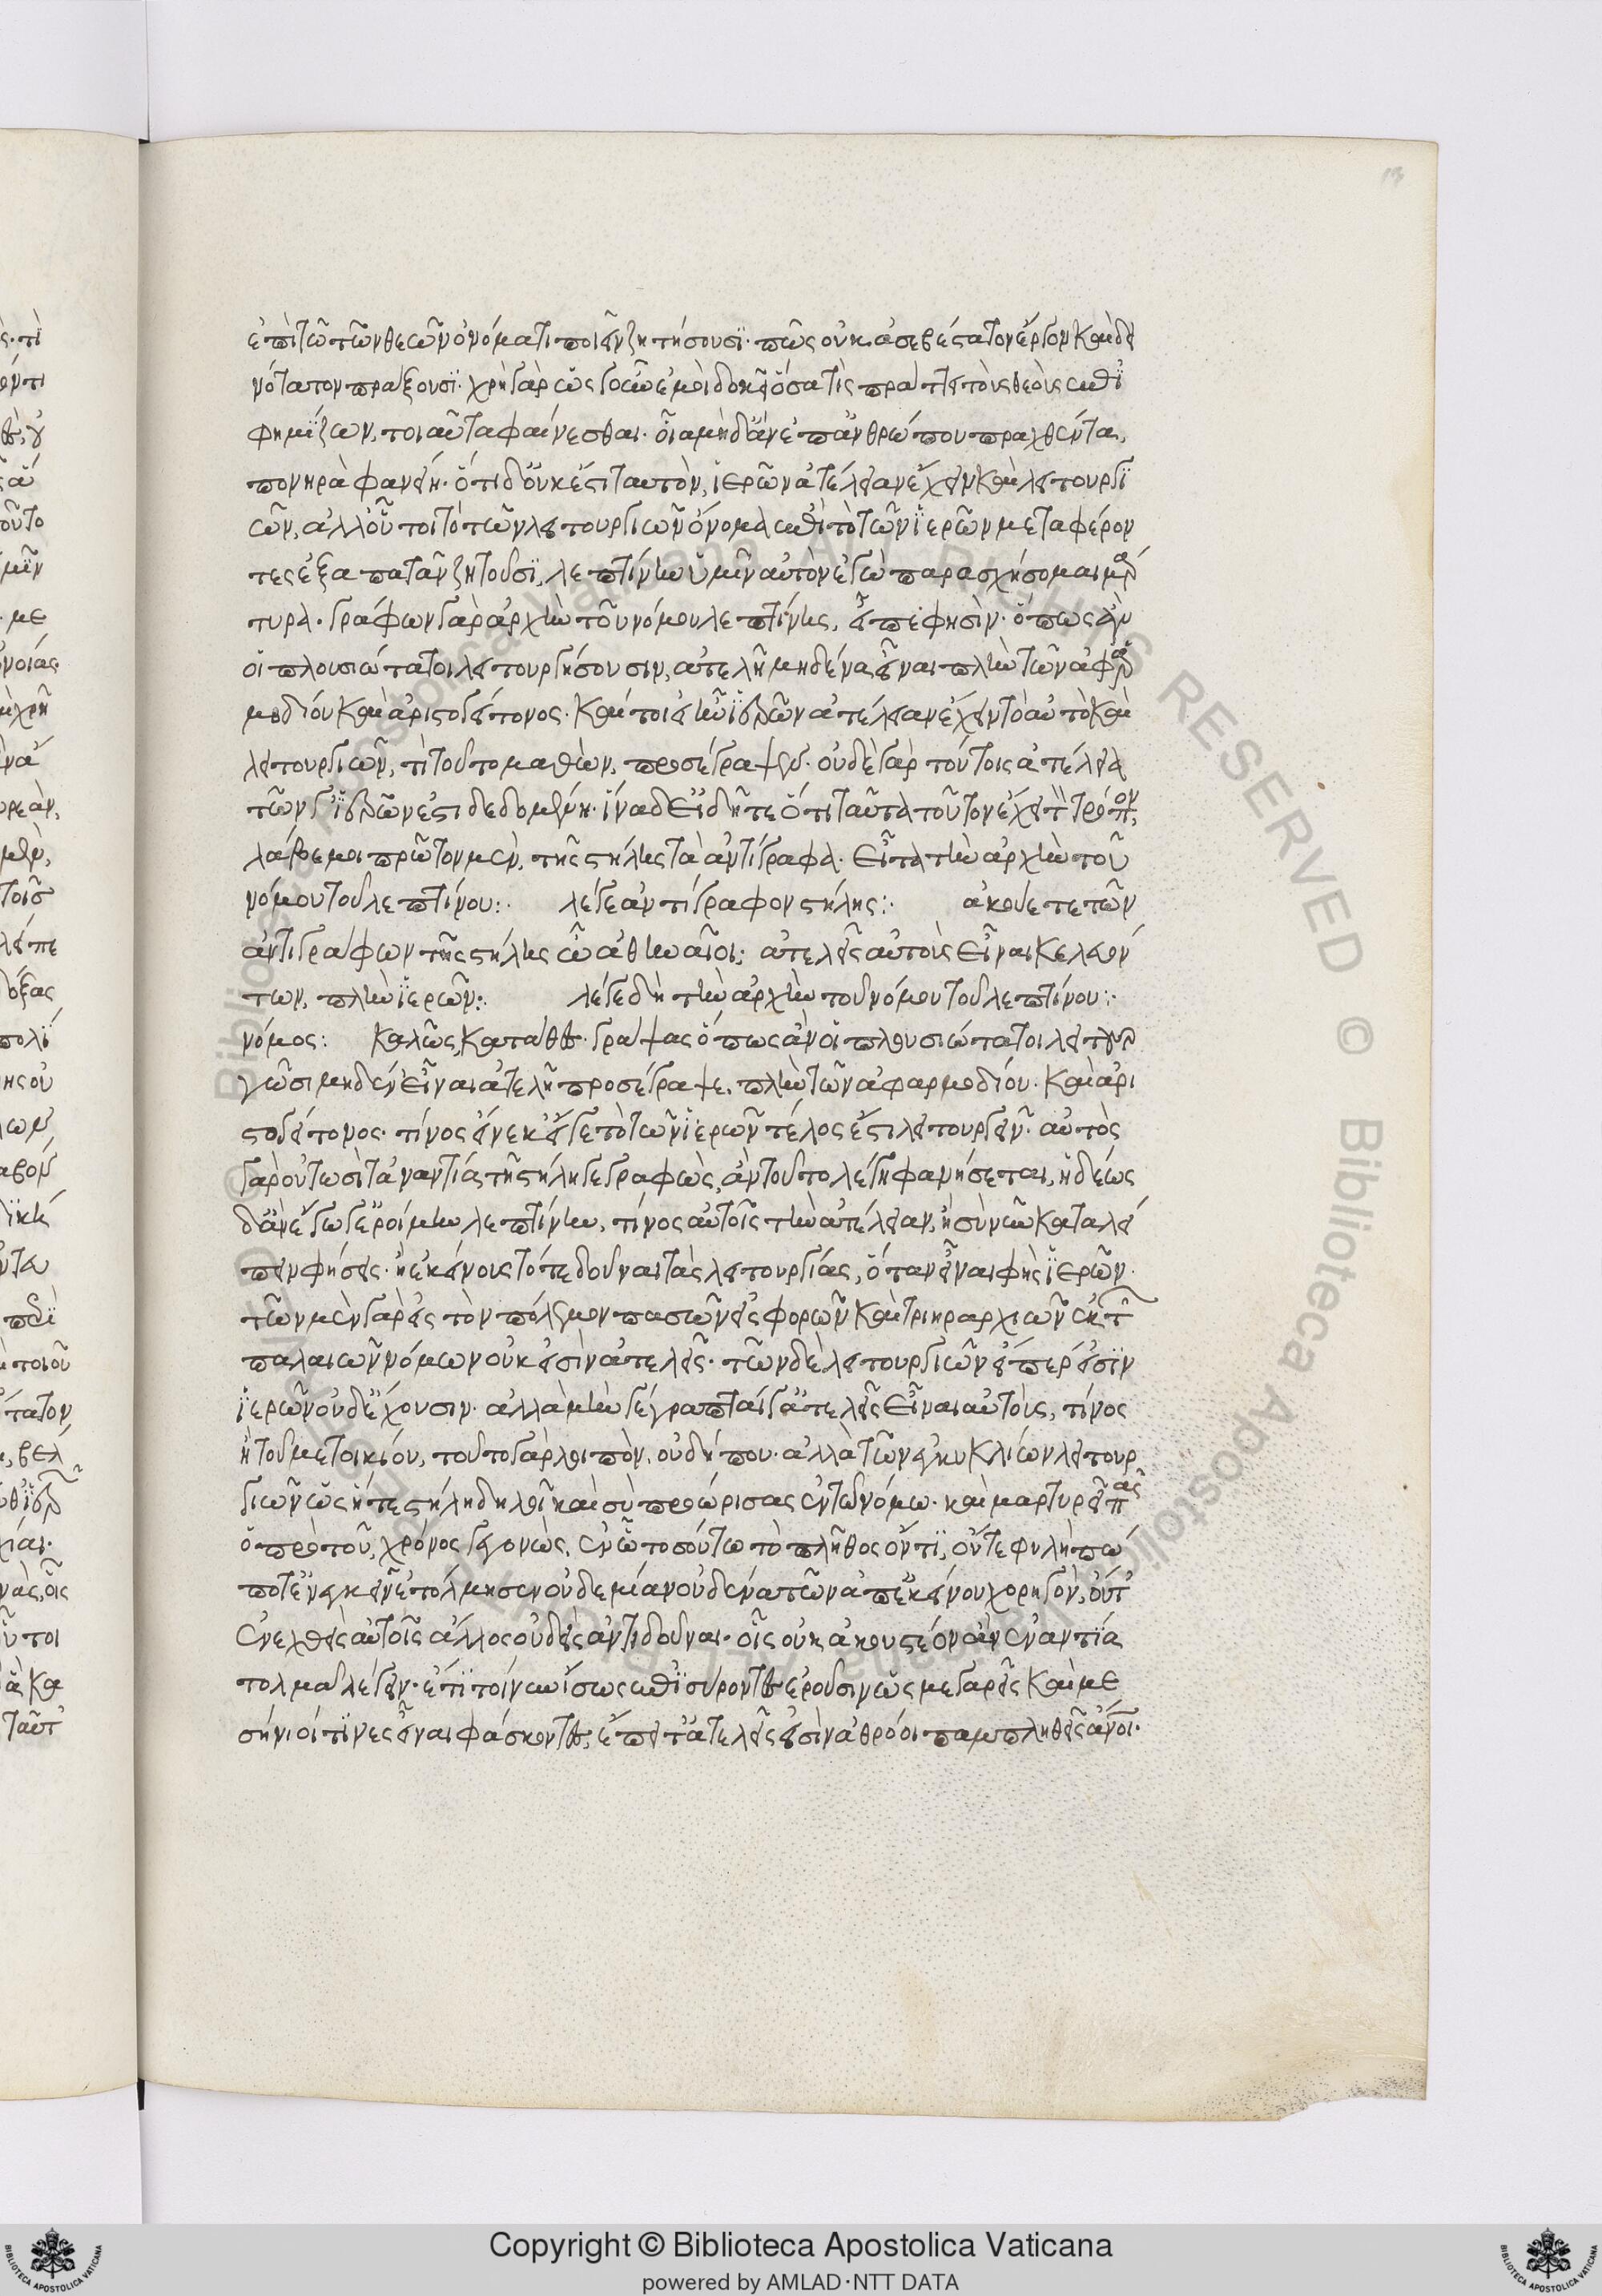 ἐπὶ τῶ τῶν θεῶν ὀνόματι ποιεῖν ζητήσουσι. πῶς οὐκ ἀσεβέστατον ἔργον καὶ δει
νότατον πράξουσι. χρὴ γὰρ ὡς γοῦν ἐμοὶ δοκεῖ ὅσα τὶς πράττει τοὺς θεοὺς ἐπι
φημίζων, τοιαῦτα φαίνεσθαι. οἷα μηδ ἂν ἐπ ἀνθρώπου πραχθέντα,
πονηρὰ φανείη. ὅτι δ οὐκ ἔστι ταυτὸν, ἱερῶν ἀτέλειαν ἔχειν καὶ λειτουργι
ῶν, ἀλλ οὗτοι τὸ τῶν λειτουργιῶν ὄνομα ἐπὶ τὸ τῶν ἱερῶν μεταφέρον
τες ἐξαπατᾶν ζητοῦσι, λεπτίνην ὑμῖν αὐτὸν ἐγὼ παρασχήσομαι μάρ
τυρα. γράφων γὰρ ἀρχὴν τοῦ νόμου λεπτίνης, εἶπε φησὶν. ὅπως ἂν
οἱ πλουσιώτατοι λειτουργήσουσιν, ἀτελῆ μηδένα εἶναι πλὴν τῶν ἀφ ἁρ
μοδίου καὶ ἀριστογείτονος. καίτοι εἰ ἦν ἱερῶν ἀτέλειαν ἔχειν τὸ αὐτὸ καὶ
λειτουργιῶν, τί τοῦτο μαθὼν, προσέγραψεν. οὐδὲ γὰρ τούτοις ἀτέλεια
τῶν γ ἱερῶν ἐστι δεδομένη. ἵνα δ εἰδῆτε ὅτι ταῦτα τοῦτον ἔχει τὸν τρόπον,
λάβε μοι πρῶτον μὲν, τῆς στήλης τὰ ἀντίγραφα. εἶτα τὴν ἀρχὴν τοῦ
νόμου τοῦ λεπτίνου:. λέγε ἀντίγραφον στήλης:. ἀκούετε τῶν
ἀντιγράφων τῆς στήλης ὦ ἀθηναῖοι; ἀτελεῖς αὐτοὺς εἶναι κελευόν
των, πλὴν ἱερῶν:. λέγε δὴ τὴν ἀρχὴν τοῦ νόμου τοῦ λεπτίνου:.
νόμος: καλῶς, κατάθες. γράψας ὅπως ἂν οἱ πλουσιώτατοι λειτουρ
γῶσι μηδέν εἶναι ἀτελῆ προσέγραψε, πλὴν τῶν ἀφ ἁρμοδίου. καὶ ἀρι
στογείτονος. τίνος ἕνεκ εἴ γε τὸ τῶν ἱερῶν τέλος ἐστὶ λειτουργεῖν. αὐτὸς
γὰρ οὕτωσὶ τἀναντία τῆ στήλη γεγραφὼς, ἂν τοῦτο λέγη φανήσεται, ἡδέως
δ ἂν ἔγωγ ἐροίμην λεπτίνην, τίνος αὐτοῖς τὴν ἀτέλειαν, ἢ σὺ νῦν καταλεί
πειν φήσεις. ἢ ἐκείνους τότε δοῦναι τὰς λειτουργίας, ὅταν εἶναι φῆς ἱερῶν.
τῶν μὲν γὰρ εἰς τὸν πόλεμον πασῶν εἰσφορῶν καὶ τριηραρχιῶν ἐκ τῶν
παλαιῶν νόμων οὐκ εἰσὶν ἀτελεῖς. τῶν δὲ λειτουργιῶν εἴπερ εἰσὶν
ἱερῶν οὐδ ἔχουσιν. ἀλλὰ μὴν γέγραπταί γ ἀτελεῖς εἶναι αὐτοὺς, τίνος
ἢ τοῦ μετοικίου, τοῦτο γὰρ λοιπὸν. οὐ δήπου. ἀλλὰ τῶν ἐγκυκλίων λειτουρ
γιῶν ὡς ἥ τε στήλη δηλοῖ καὶ σὺ προώρισας ἐν τῶ νόμω. καὶ μαρτυρεῖ πᾶς
ὁ πρὸ τοῦ, χρόνος γεγονὼς, ἐν ὧ τοσούτω τὸ πλῆθος ὄντι, οὔτε φυλὴ πώ
ποτ ἐνεγκεῖν ἐτόλμησεν οὐδεμία οὐδένα τῶν ἀπ ἐκείνου χορηγὸν, οὔτ
ἐνεχθεὶς αὐτοῖς ἄλλος οὐδεὶς ἀντιδοῦναι. οἷς οὐκ ἀκουστέον ἂν ἐναντία
τολμᾶ λέγειν. ἔτι τοίνυν ἴσως ἐπισύροντες ἐροῦσιν ὡς μεγαρεῖς καὶ με
σήνιοί τινες εἶναι φάσκοντες, ἔπειτ ἀτελεῖς εἰσὶν ἀθρόοι παμπληθεῖς ἄνοι.